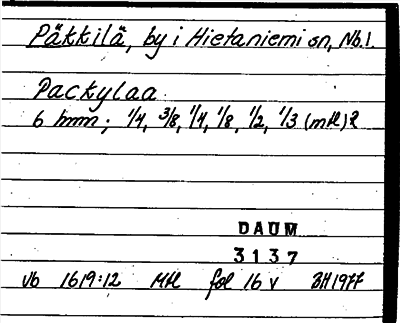 Päkkilä, by i Hietaniemi sn, Nb.l.
Packylaa
6 hmn; 1/4, 3/8, 1/4, 1/8, 1/2, 1/3 (mtl)2
DAUM
3137
Vb 1619:12 Mtl fol 16 v BH1977